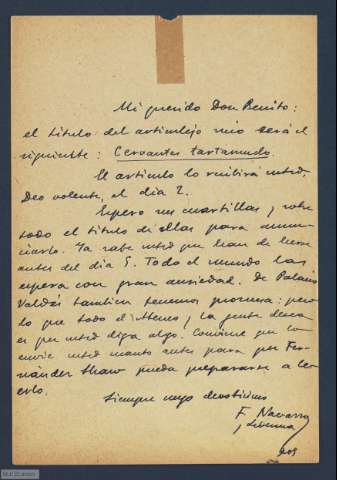 Mi querido Don Benito:
el titulo del articulejo mio será el
siguiente: Cervantes tartamudo.
El articulo lo recibirá usted,
Deo volente, el dia 2.
Espero sus cuartillas y sobre
todo el titulo de ellas para anun-
ciarlo. Ya sabe usted que han de leerse
antes del dia 5. Todo el mundo las
espera con gran ansiedad. De Palacio
Valdés tambien tenemos promesa: pero
lo que todo el Ateneo y la gente desea
es que usted diga algo. Conviene que lo
envie usted cuanto antes para que Fer-
nández Shaw pueda prepararse a le-
erlo.
Siempre suyo devotísimo
F. Navarro
y Ledesma